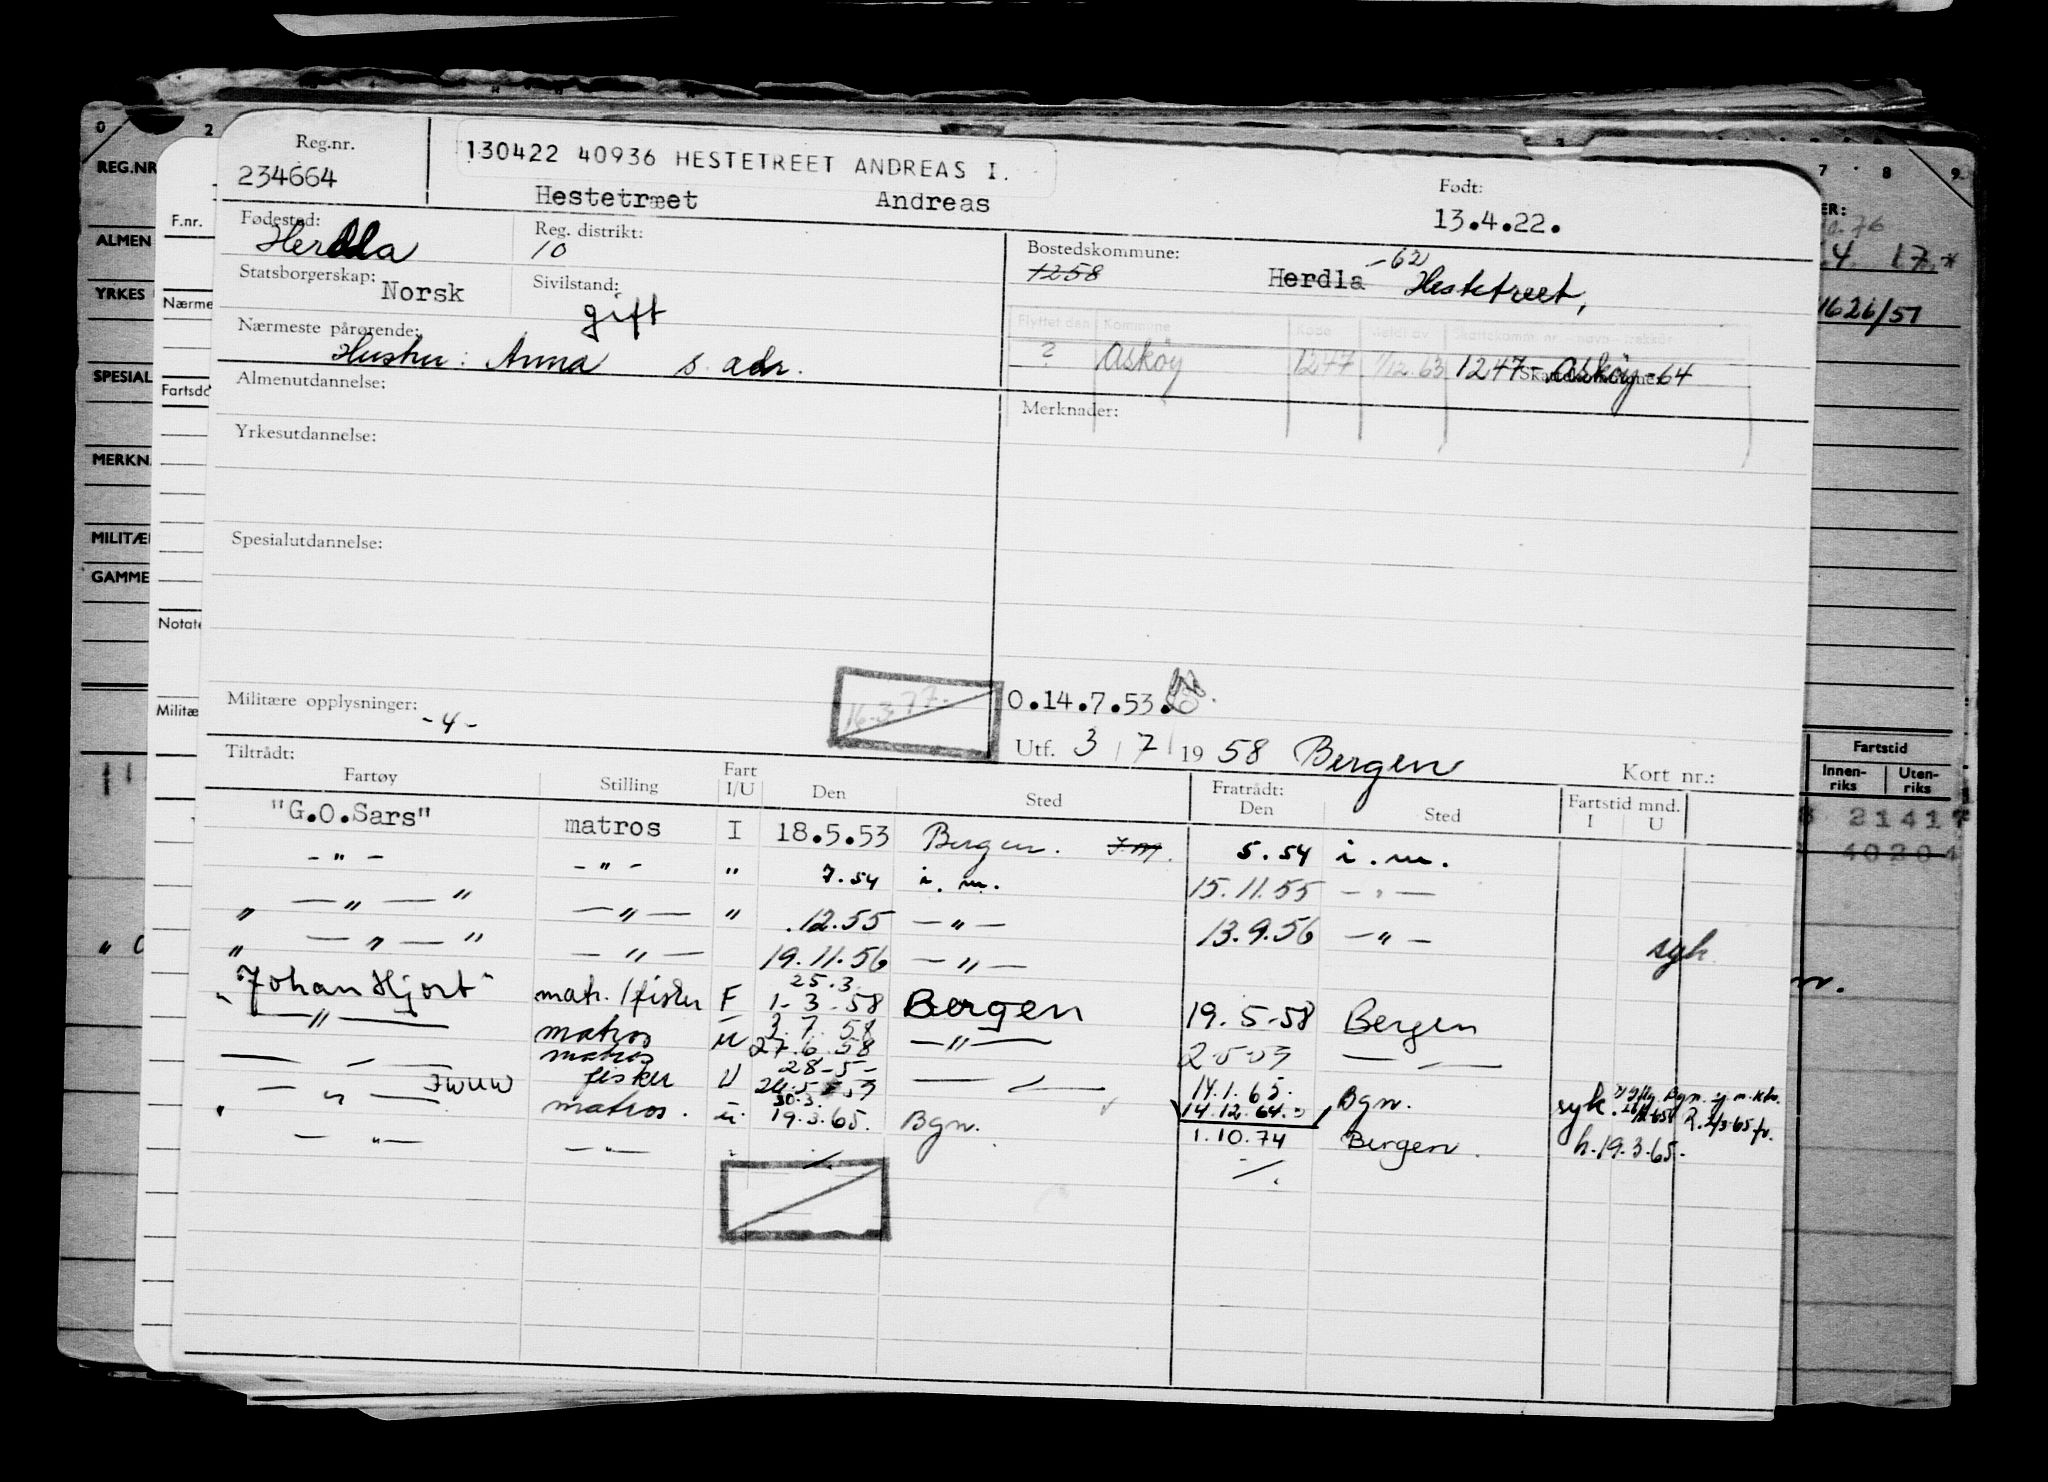 Reg.nr.
234664
130422 40936 HESTETREET ANDREAS I.
Hestetræet Andreas
Født:
13.4.22.
Fødested:
Herdla
Reg. distrikt:
10
Bostedskommune:
1258 Herdla -62 Hestetreet,
Statsborgerskap: Norsk
Sivilstand:
gift
Flyttet den Kommune Kode Meldt av Skattekomm. nr. - navn - trekkår
? Askøy 1247 1/12.63 1247 - Askøy - 64
Nærmeste pårørende:
Hustru: Anna s. adr.
Almenutdannelse:
Merknader:
Yrkesutdannelse:
Spesialutdannelse:
Militære opplysninger: -4-
16.3.77-
0.14.7.53.
Utf. 3/7 1958 Bergen
Tiltrådt:
Kort nr.:
Fartøy Stilling Fart I/U Den Sted Fratrådt: Den Sted Fartstid mnd. I U
"G.O.Sars" matros I 18.5.53 Bergen. 5.54 i.m.
-"- -"- " 7.54 i.m. 15.11.55 -"-
" -"- " -"- " .12.55 -"- 13.9.56 -"- syk
" -"- " -"- 19.11.56 -"-
"Johan Hjort" matr./fisker F 25.3. 1-3-58 Bergen 19.5-58 Bergen
-"- matros u 3.7.58 27.6.58 -"- 2-5-59
matros fisker U 28-5- 24.5-59 14.1.65. 14.12.64. Bgn. syk.
-"- matros. u. 30.3. 19.3.65. Bgn. 1.10.74 Bergen. h.19.3.65.
-"- -"-
0 2
REG.NR
ALMEN
YRKES
SPESIAL
MERKN
MILITÆ
GAMME
F.nr.
Nærme
Fartsdo
Notate
Militæ
7 8 9
ER:
1626/51
Fartstid
Innen-
riks
Uten-
riks
2141
40204